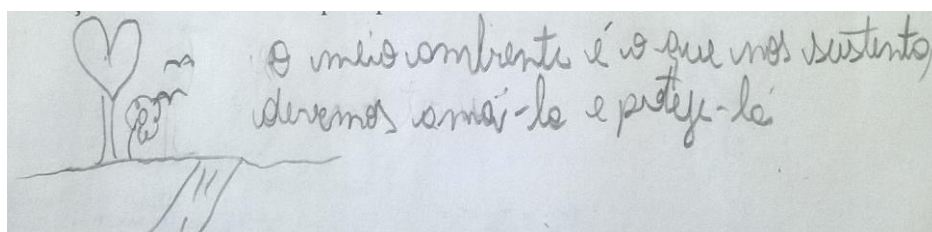 o meio ambiente é o que nos sustenta,
devemos amá-lo e proteje-lo